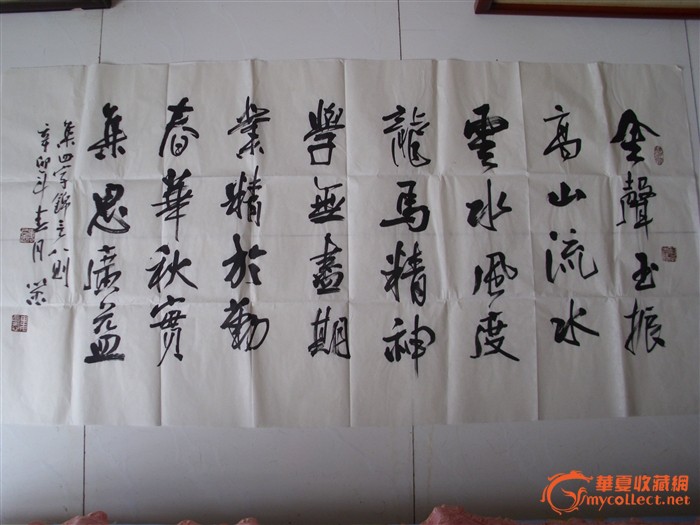 金聲玉振
高山流水
雲水風度
龍馬精神
學無盡期
業精於勤
春華秋實
集思廣益
集四字錦言八則
辛卯年 月
華夏收藏網
mycollect.net